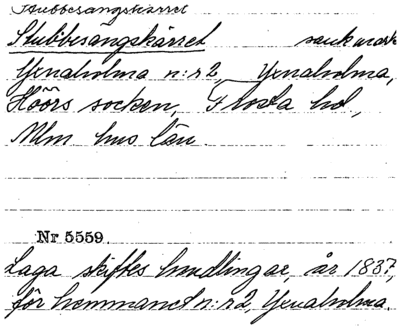 Stubbesangskärret
Stubbesangskärret sankmark
Yxnaholma n:r 2, Yxnaholma,
Höörs socken, Frosta hd,
Mlm hus län.
Nr 5559
Laga skiftes handlingar, år 1837,
för hemmanet n:r 2, Yxnaholma.